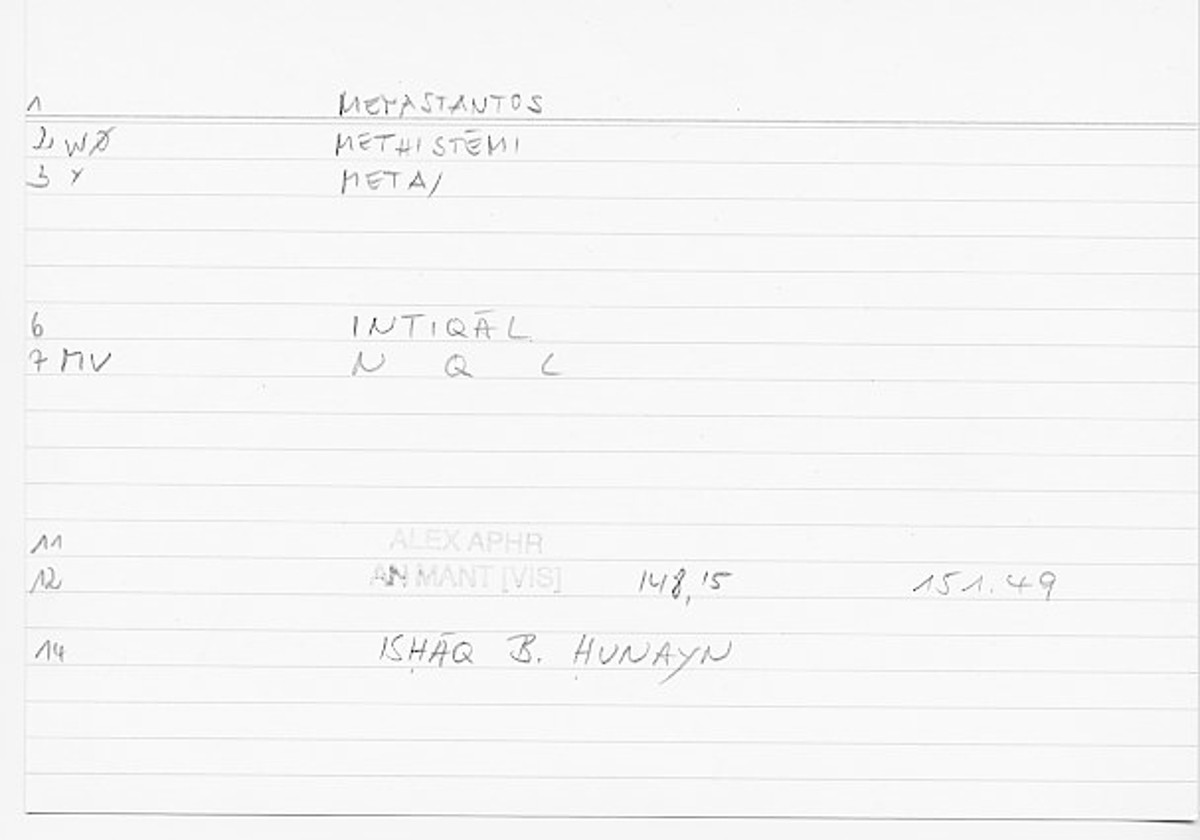 1 METASTANTOS
2 WØ METHISTĒMI
3 Y META/
6 INTIQĀL
7 MV N Q L
11 ALEX APHR
12 AN MANT [VIS] 148,15 151.49
14 ISḤĀQ B. ḤUNAYN